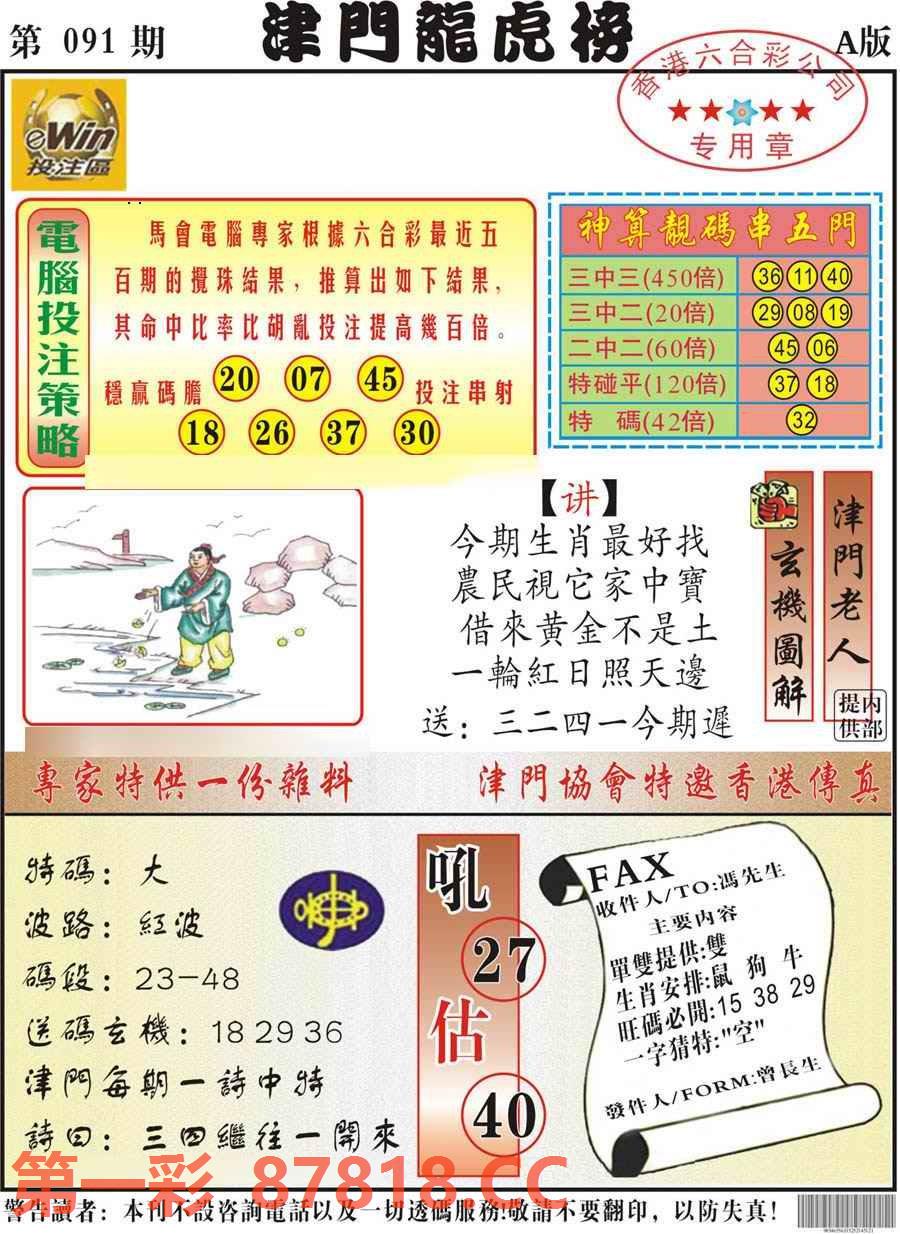 第 091 期
津門龍虎榜
A版
香港六合彩公司
专用章
eWin
投注區
電腦投注策略
馬會電腦專家根據六合彩最近五
百期的攪珠結果，推算出如下結果，
其命中比率比胡亂投注提高幾百倍。
穩贏碼膽 20 07 45 投注串射
18 26 37 30
神算靚碼串五門
三中三(450倍) 36 11 40
三中二(20倍) 29 08 19
二中二(60倍) 45 06
特碰平(120倍) 37 18
特 碼(42倍) 32
【讲】
今期生肖最好找
農民視它家中寶
借來黄金不是土
一輪紅日照天邊
送：三二四一今期遲
玄機圖解
津門老人
提内
供部
專家特供一份雜料
津門協會特邀香港傳真
特碼：大
波路：紅波
碼段：23-48
送碼玄機：18 29 36
津門每期一詩中特
詩曰：三四繼往一開來
吼
27
估
40
FAX
收件人/TO:馮先生
主要内容
單雙提供:雙
生肖安排:鼠 狗 牛
旺碼必開:15 38 29
一字猜特:"空"
發件人/FORM:曾長生
第一彩 87818.CC
警告讀者：本刊不設咨詢電話以及一切透碼服務!敬請不要翻印，以防失真!